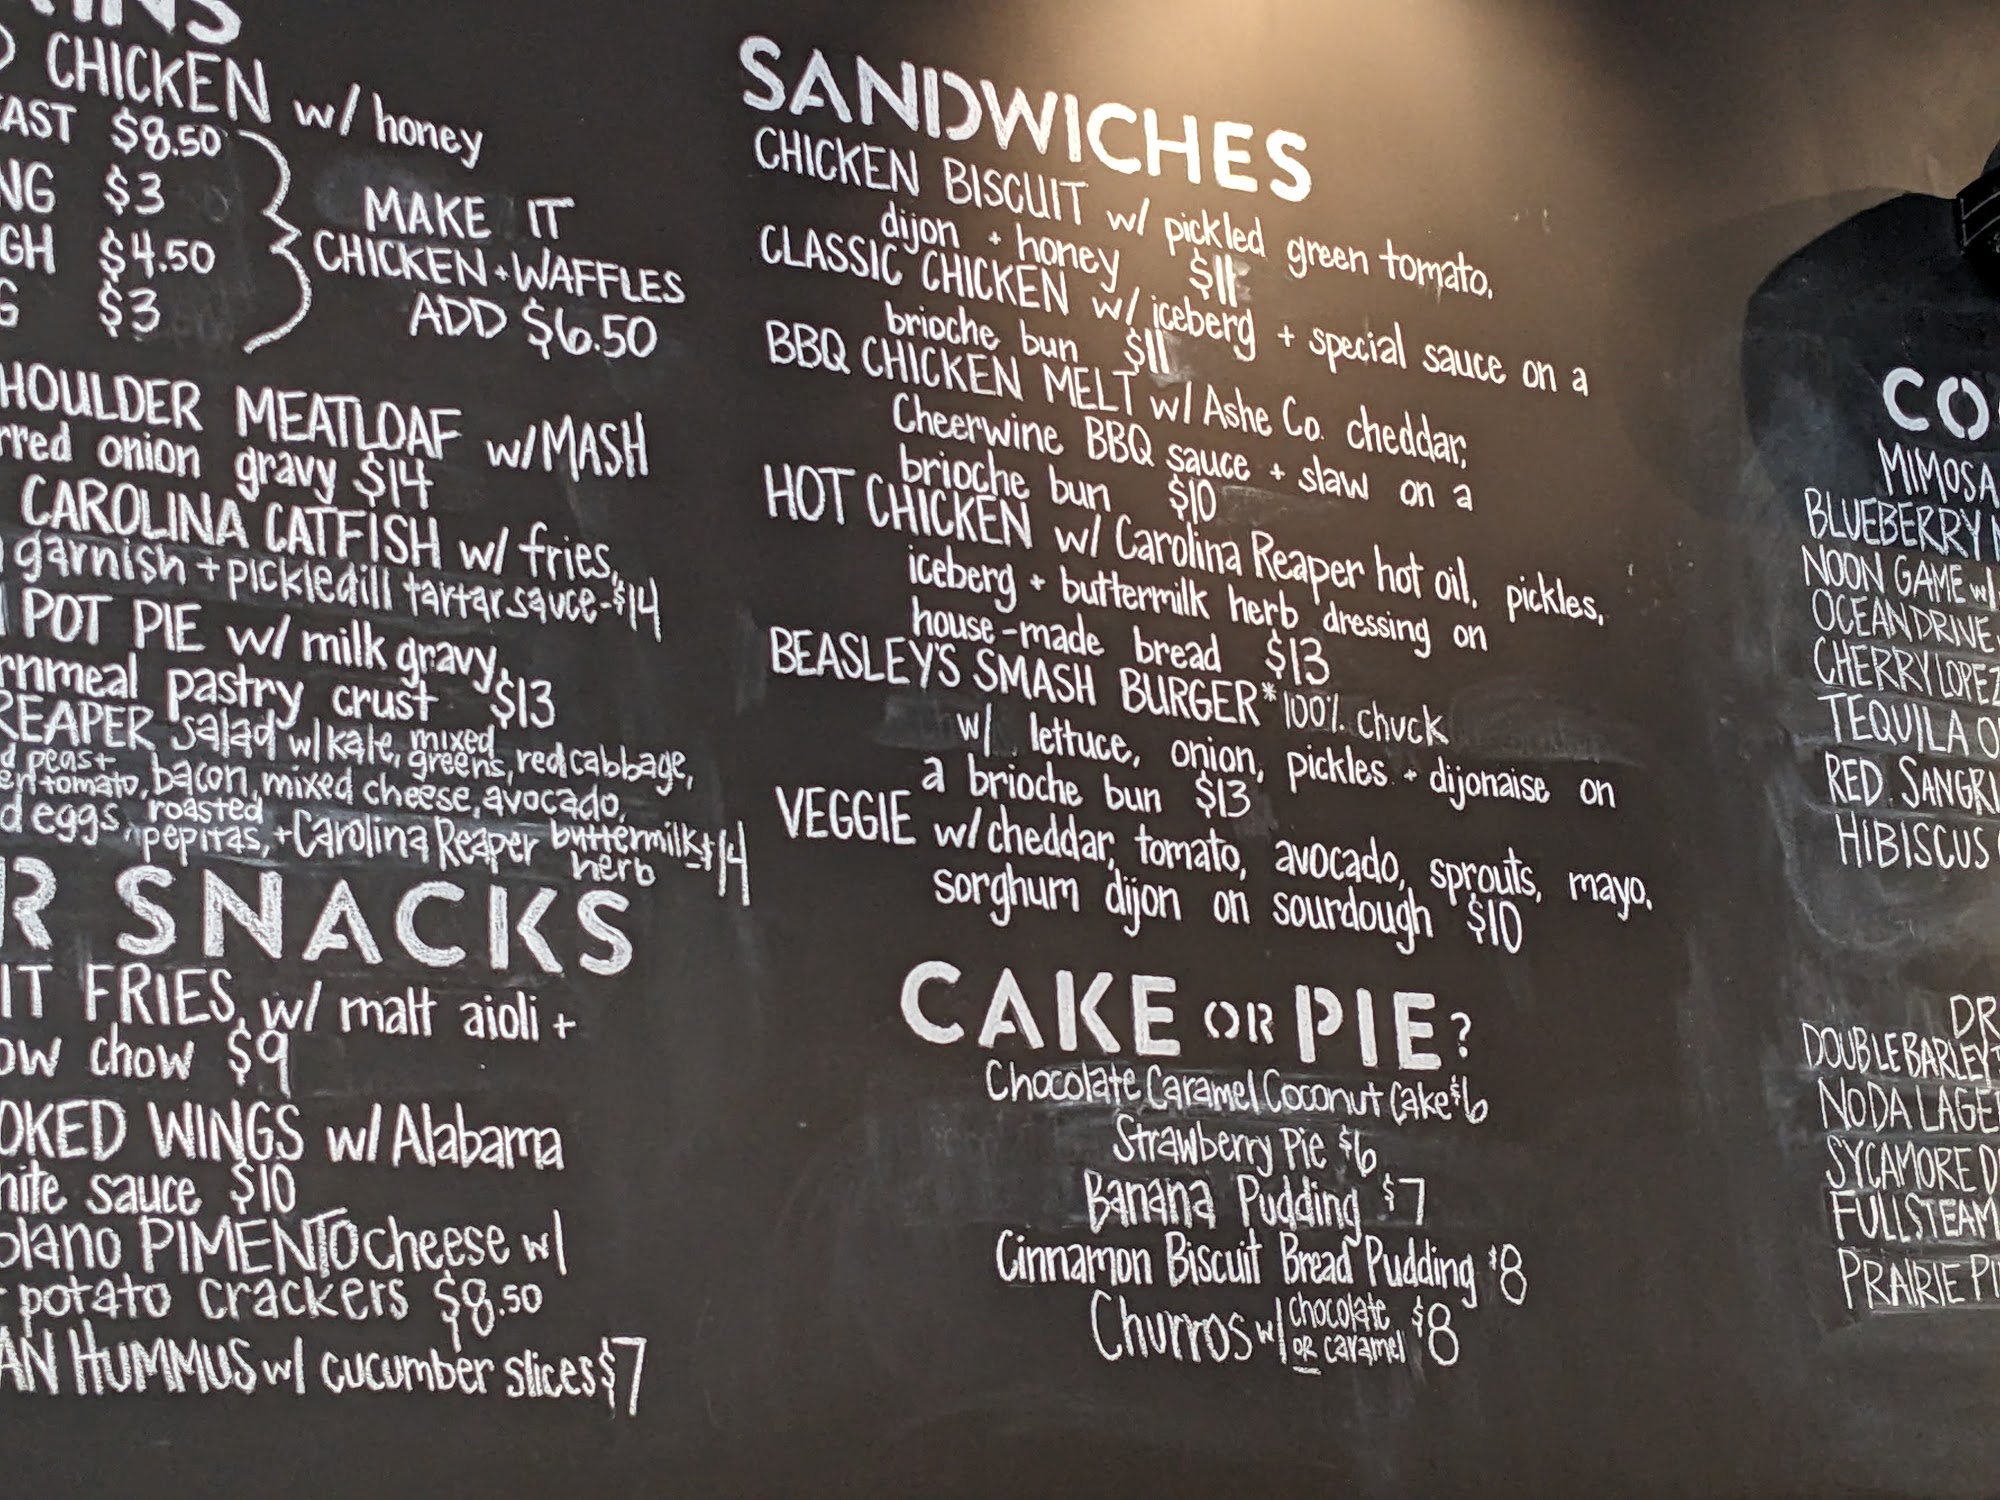 CHICKEN w/ honey
$8.50
$3
$4.50
$3
MAKE IT
CHICKEN + WAFFLES
ADD $6.50
MEATLOAF w/ MASH
onion gravy $14
CAROLINA CATFISH w/ fries,
garnish + pickledill tartar sauce - $14
POT PIE w/ milk gravy,
pastry crust $13
REAPER salad w/ kale, mixed greens, red cabbage,
tomato, bacon, mixed cheese, avocado,
eggs, roasted pepitas, + Carolina Reaper buttermilk herb - $14
SNACKS
FRIES w/ malt aioli +
chow $9
WINGS w/ Alabama
sauce $10
PIMENTO cheese w/
potato crackers $8.50
HUMMUS w/ cucumber slices $7
SANDWICHES
CHICKEN BISCUIT w/ pickled green tomato,
dijon + honey $11
CLASSIC CHICKEN w/ iceberg + special sauce on a
brioche bun $11
BBQ CHICKEN MELT w/ Ashe Co. cheddar,
Cheerwine BBQ sauce + slaw on a
brioche bun $10
HOT CHICKEN w/ Carolina Reaper hot oil, pickles,
iceberg + buttermilk herb dressing on
house-made bread $13
BEASLEY'S SMASH BURGER* 100% chuck
w/ lettuce, onion, pickles + dijonaise on
a brioche bun $13
VEGGIE w/ cheddar, tomato, avocado, sprouts, mayo,
sorghum dijon on sourdough $10
CAKE OR PIE?
Chocolate Caramel Coconut Cake $6
Strawberry Pie $6
Banana Pudding $7
Cinnamon Biscuit Bread Pudding $8
Churros w/ chocolate OR caramel $8
MIMOSA
BLUEBERRY
NOON GAME w/
OCEAN DRIVE
CHERRY LOPEZ
TEQUILA
RED SANGRI
HIBISCUS
DOUBLE BARLEY
NODA LAGE
SYCAMORE
FULLSTEAM
PRAIRIE